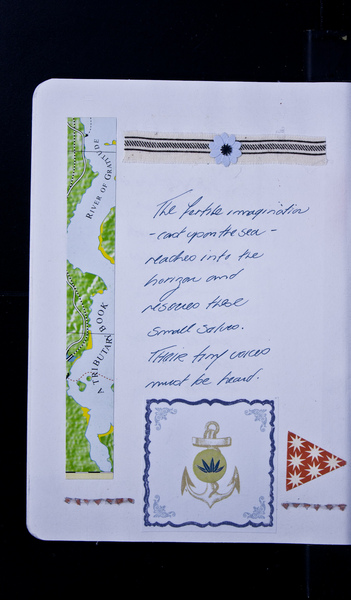 RIVER OF GRATITUDE
A TRIBUTARY BOOK
The fertile imagination
- cast upon the sea -
reaches into the
horizon and
rescues these
small selves.
Their tiny voices
must be heard.